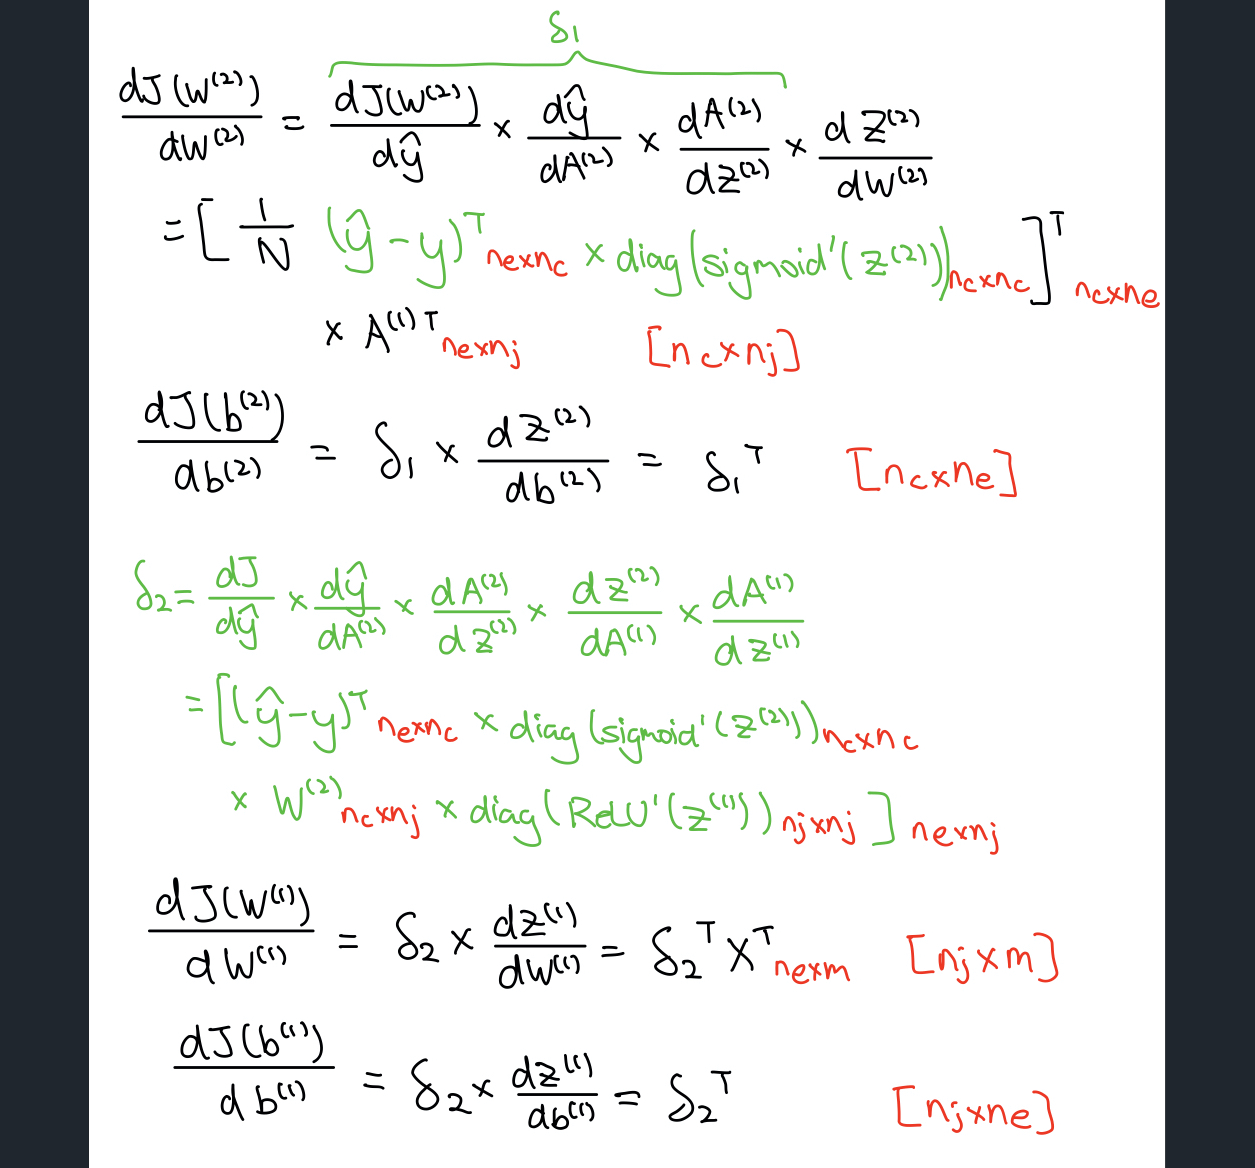 δ₁
dJ(W⁽²⁾)/dW⁽²⁾ = dJ(W⁽²⁾)/dŷ × dŷ/dA⁽²⁾ × dA⁽²⁾/dz⁽²⁾ × dz⁽²⁾/dW⁽²⁾
= [ 1/N (ŷ-y)ᵀ nexnc × diag(sigmoid'(z⁽²⁾)) ncxnc ]ᵀ ncxne
× A⁽¹⁾ᵀ nexnj [ncxnj]
dJ(b⁽²⁾)/db⁽²⁾ = δ₁ × dz⁽²⁾/db⁽²⁾ = δ₁ᵀ [ncxne]
δ₂ = dJ/dŷ × dŷ/dA⁽²⁾ × dA⁽²⁾/dz⁽²⁾ × dz⁽²⁾/dA⁽¹⁾ × dA⁽¹⁾/dz⁽¹⁾
= [(ŷ-y)ᵀ nexnc × diag(sigmoid'(z⁽²⁾)) ncxnc
× W⁽²⁾ ncxnj × diag(ReLU'(z⁽¹⁾)) njxnj ] nexnj
dJ(W⁽¹⁾)/dW⁽¹⁾ = δ₂ × dz⁽¹⁾/dW⁽¹⁾ = δ₂ᵀ Xᵀ nexm [njxm]
dJ(b⁽¹⁾)/db⁽¹⁾ = δ₂ × dz⁽¹⁾/db⁽¹⁾ = δ₂ᵀ [njxne]